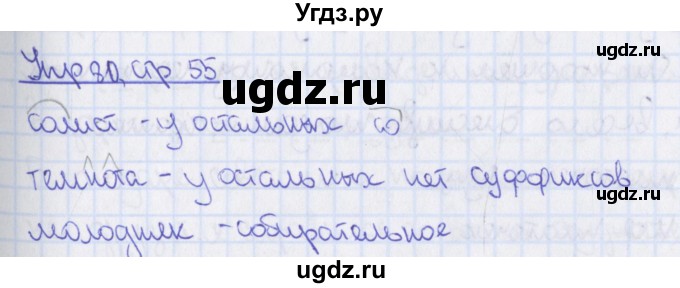 Угдз.ру
Упр 80, стр 55
ugdz.ru
солист - у остальных со
ugdz.ru
темнота - у остальных нет суффиксов
молодняк - собирательное
ugdz.ru